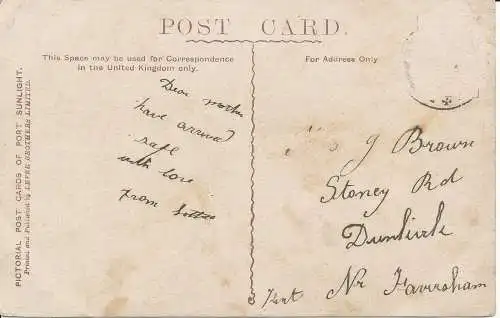 POST CARD.
This Space may be used for Correspondence
in the United Kingdom only.
For Address Only
PICTORIAL POST CARDS OF PORT SUNLIGHT.
Printed and Published by LEVER BROTHERS LIMITED.
Dear mother
have arrived
safe
with love
from
J Brown
Stoney Rd
Dunkirk
Kent Nr Faversham